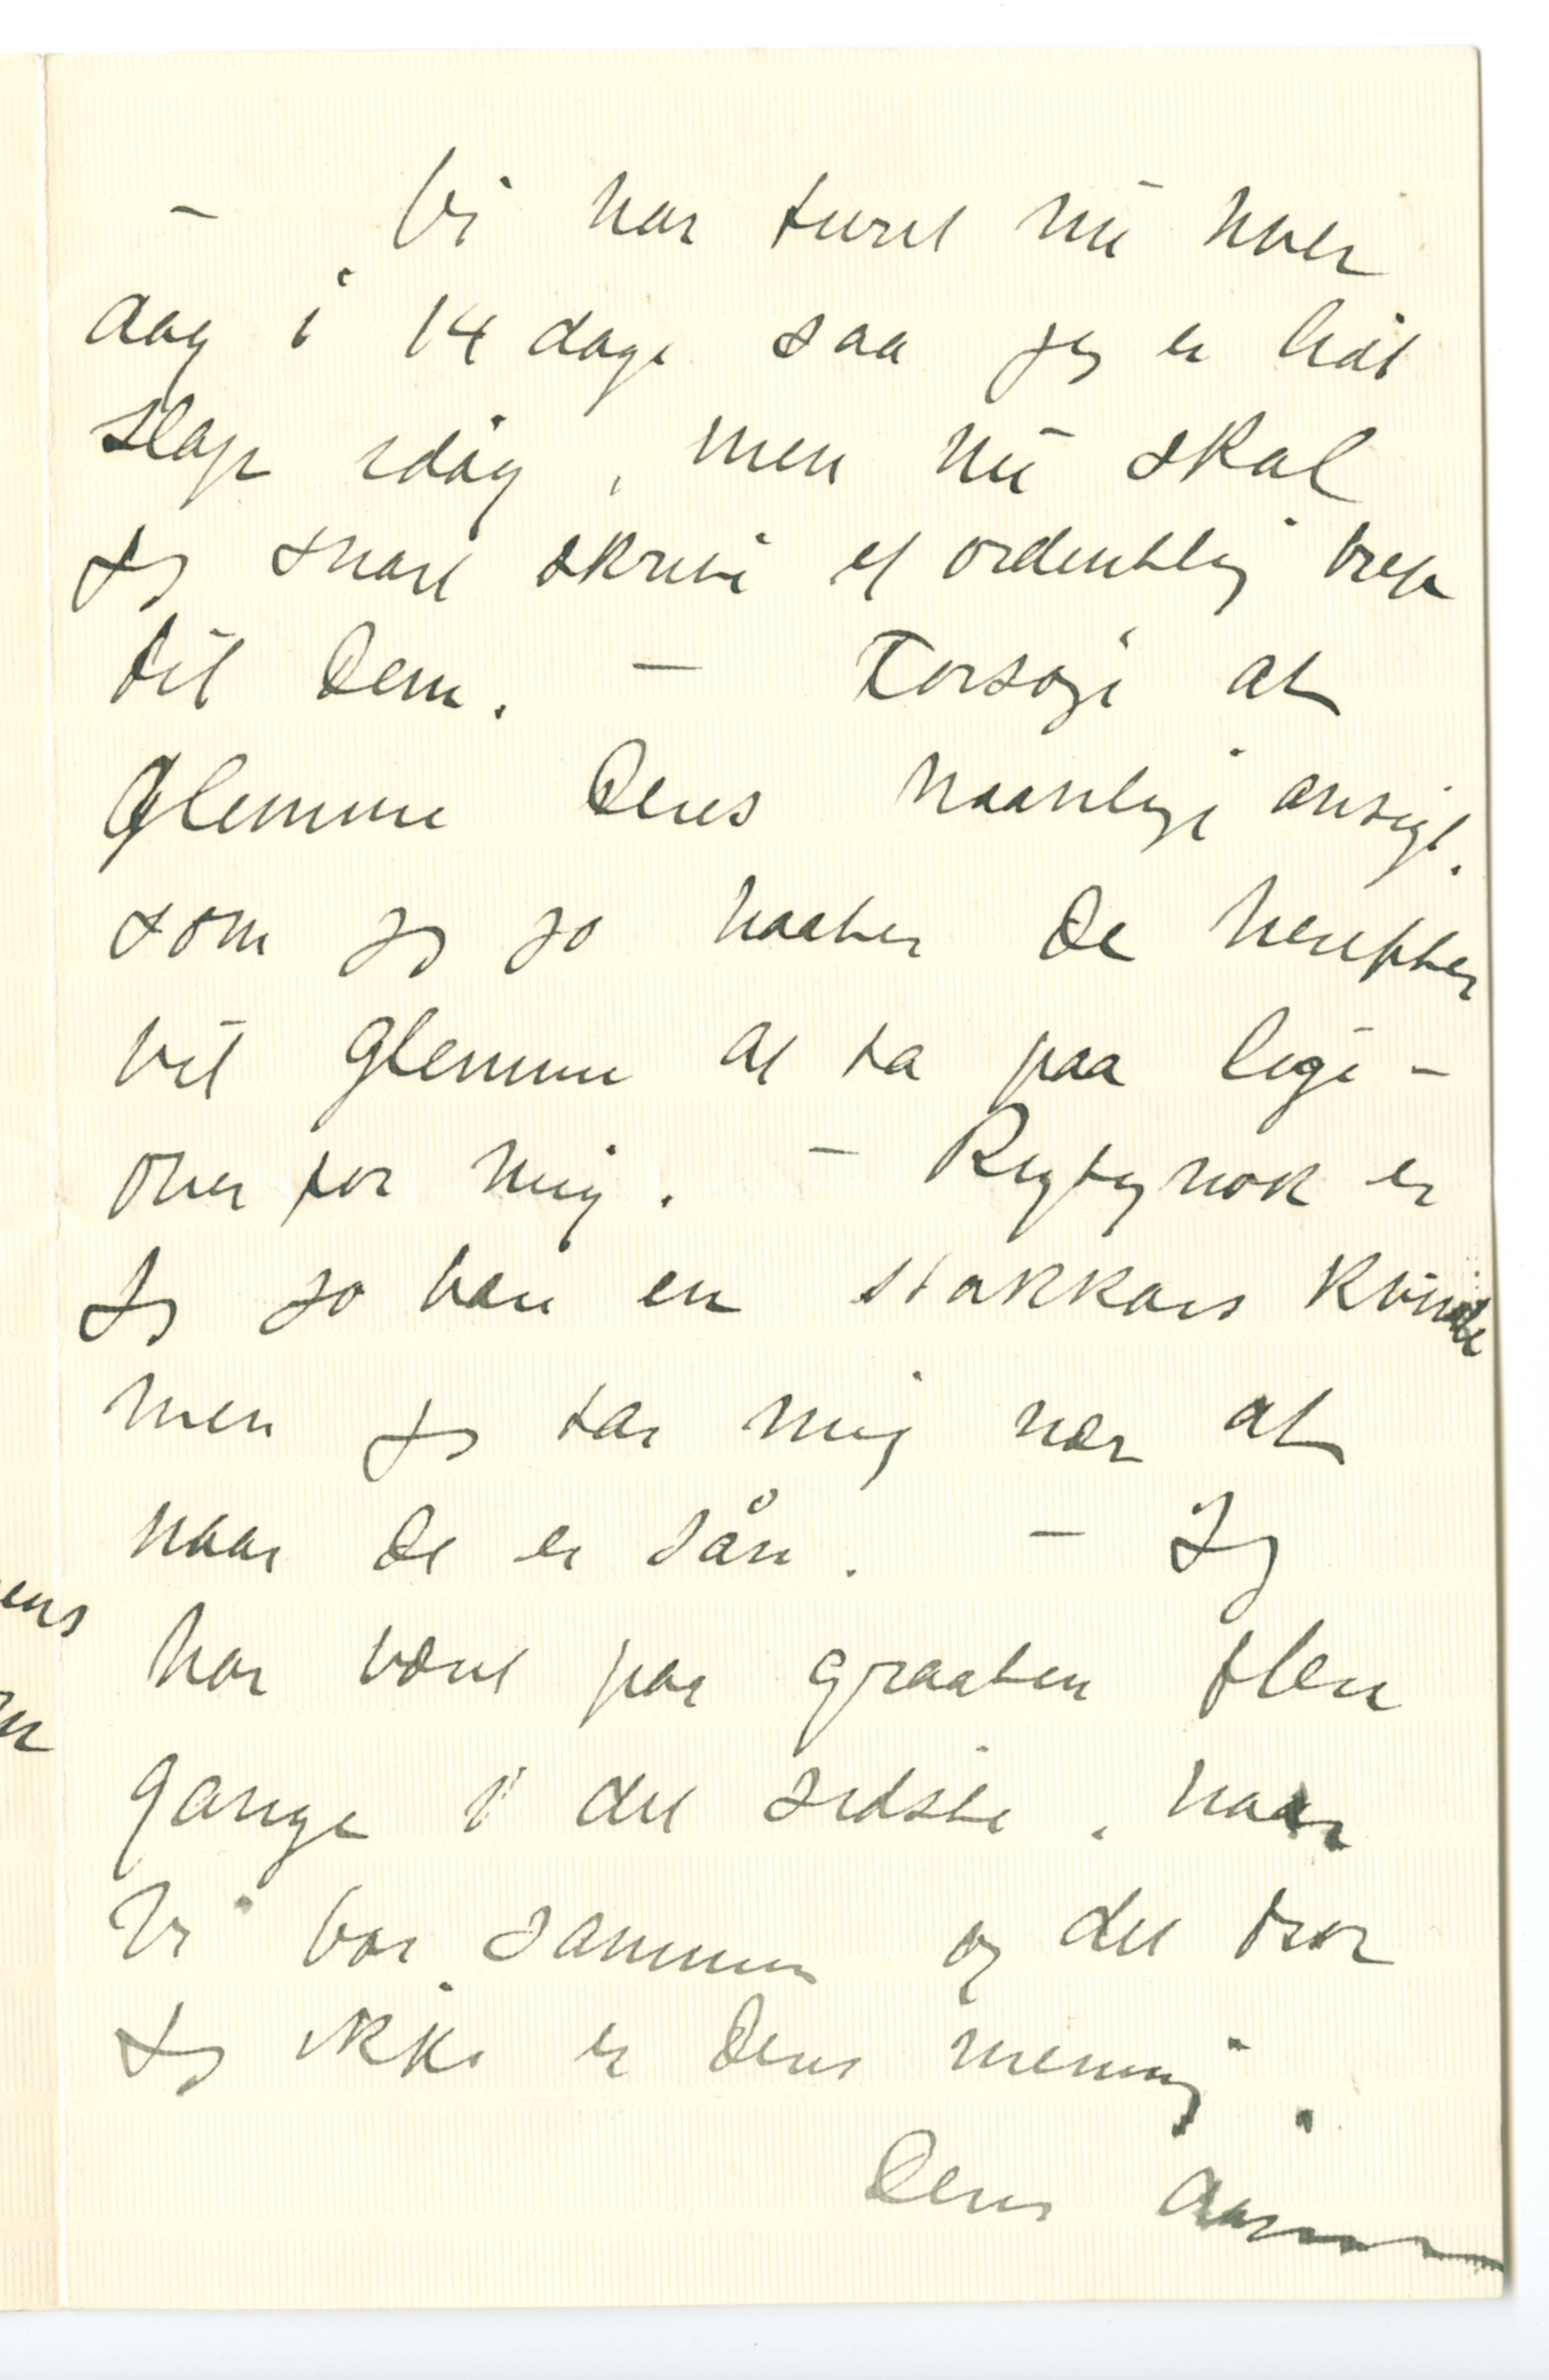 – Vi har turet nu hver
dag i 14 dage saa jeg er lidt
slap idag, men nu skal
jeg snart skrive et ordentlig brev
til Dem. – Forsøge at
glemme Deres haanlige ansigt.
som jeg jo haaber De herefter
vil glemme at ta paa lige –
over for mig. – Rigtignok er
jeg jo bare en stakkars kvinde
men jeg tar mig nær at
naar De er sån. – Jeg
har været paa graaten flere
gange i det sidste, naar
vi var sammen og det tror
jeg ikke er Deres mening.
Deres
ens